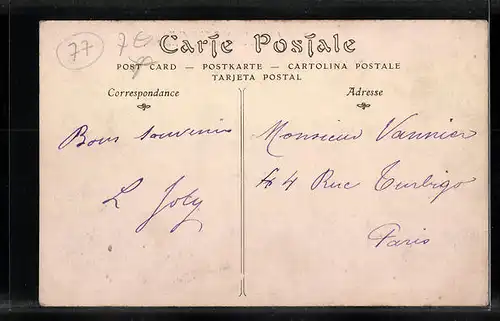 77
Carte Postale
POST CARD — POSTKARTE — CARTOLINA POSTALE
TARJETA POSTAL
Correspondance
Adresse
Bons souvenirs
L Joly
Monsieur Vannier
44 Rue Turbigo
Paris